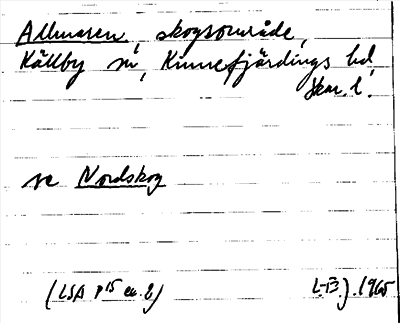 Allmaren, skogsområde,
Källby sn, Kinnefjärdings hd,
Skar. l.
se Nordskog
(LSA P15 ex. 2) L-B). 1965